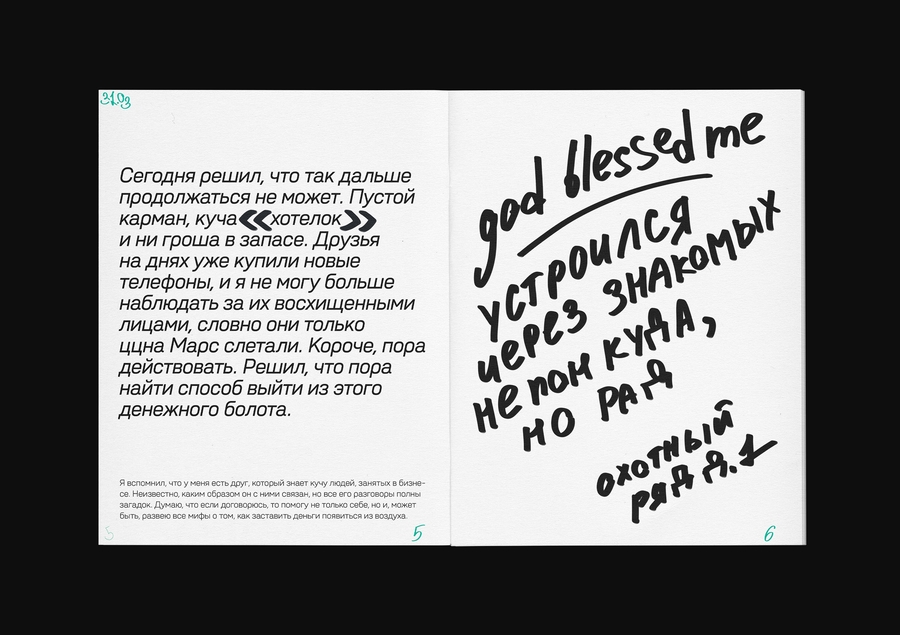 31.03
Сегодня решил, что так дальше
продолжаться не может. Пустой
карман, куча «хотелок»
и ни гроша в запасе. Друзья
на днях уже купили новые
телефоны, и я не могу больше
наблюдать за их восхищенными
лицами, словно они только
ццна Марс слетали. Короче, пора
действовать. Решил, что пора
найти способ выйти из этого
денежного болота.
Я вспомнил, что у меня есть друг, который знает кучу людей, занятых в бизне-
се. Неизвестно, каким образом он с ними связан, но все его разговоры полны
загадок. Думаю, что если договорюсь, то помогу не только себе, но и, может
быть, развею все мифы о том, как заставить деньги появиться из воздуха.
5
5
god blessed me
устроился
через знакомых
не пон куда,
но рад
охотный
ряд д.1
6